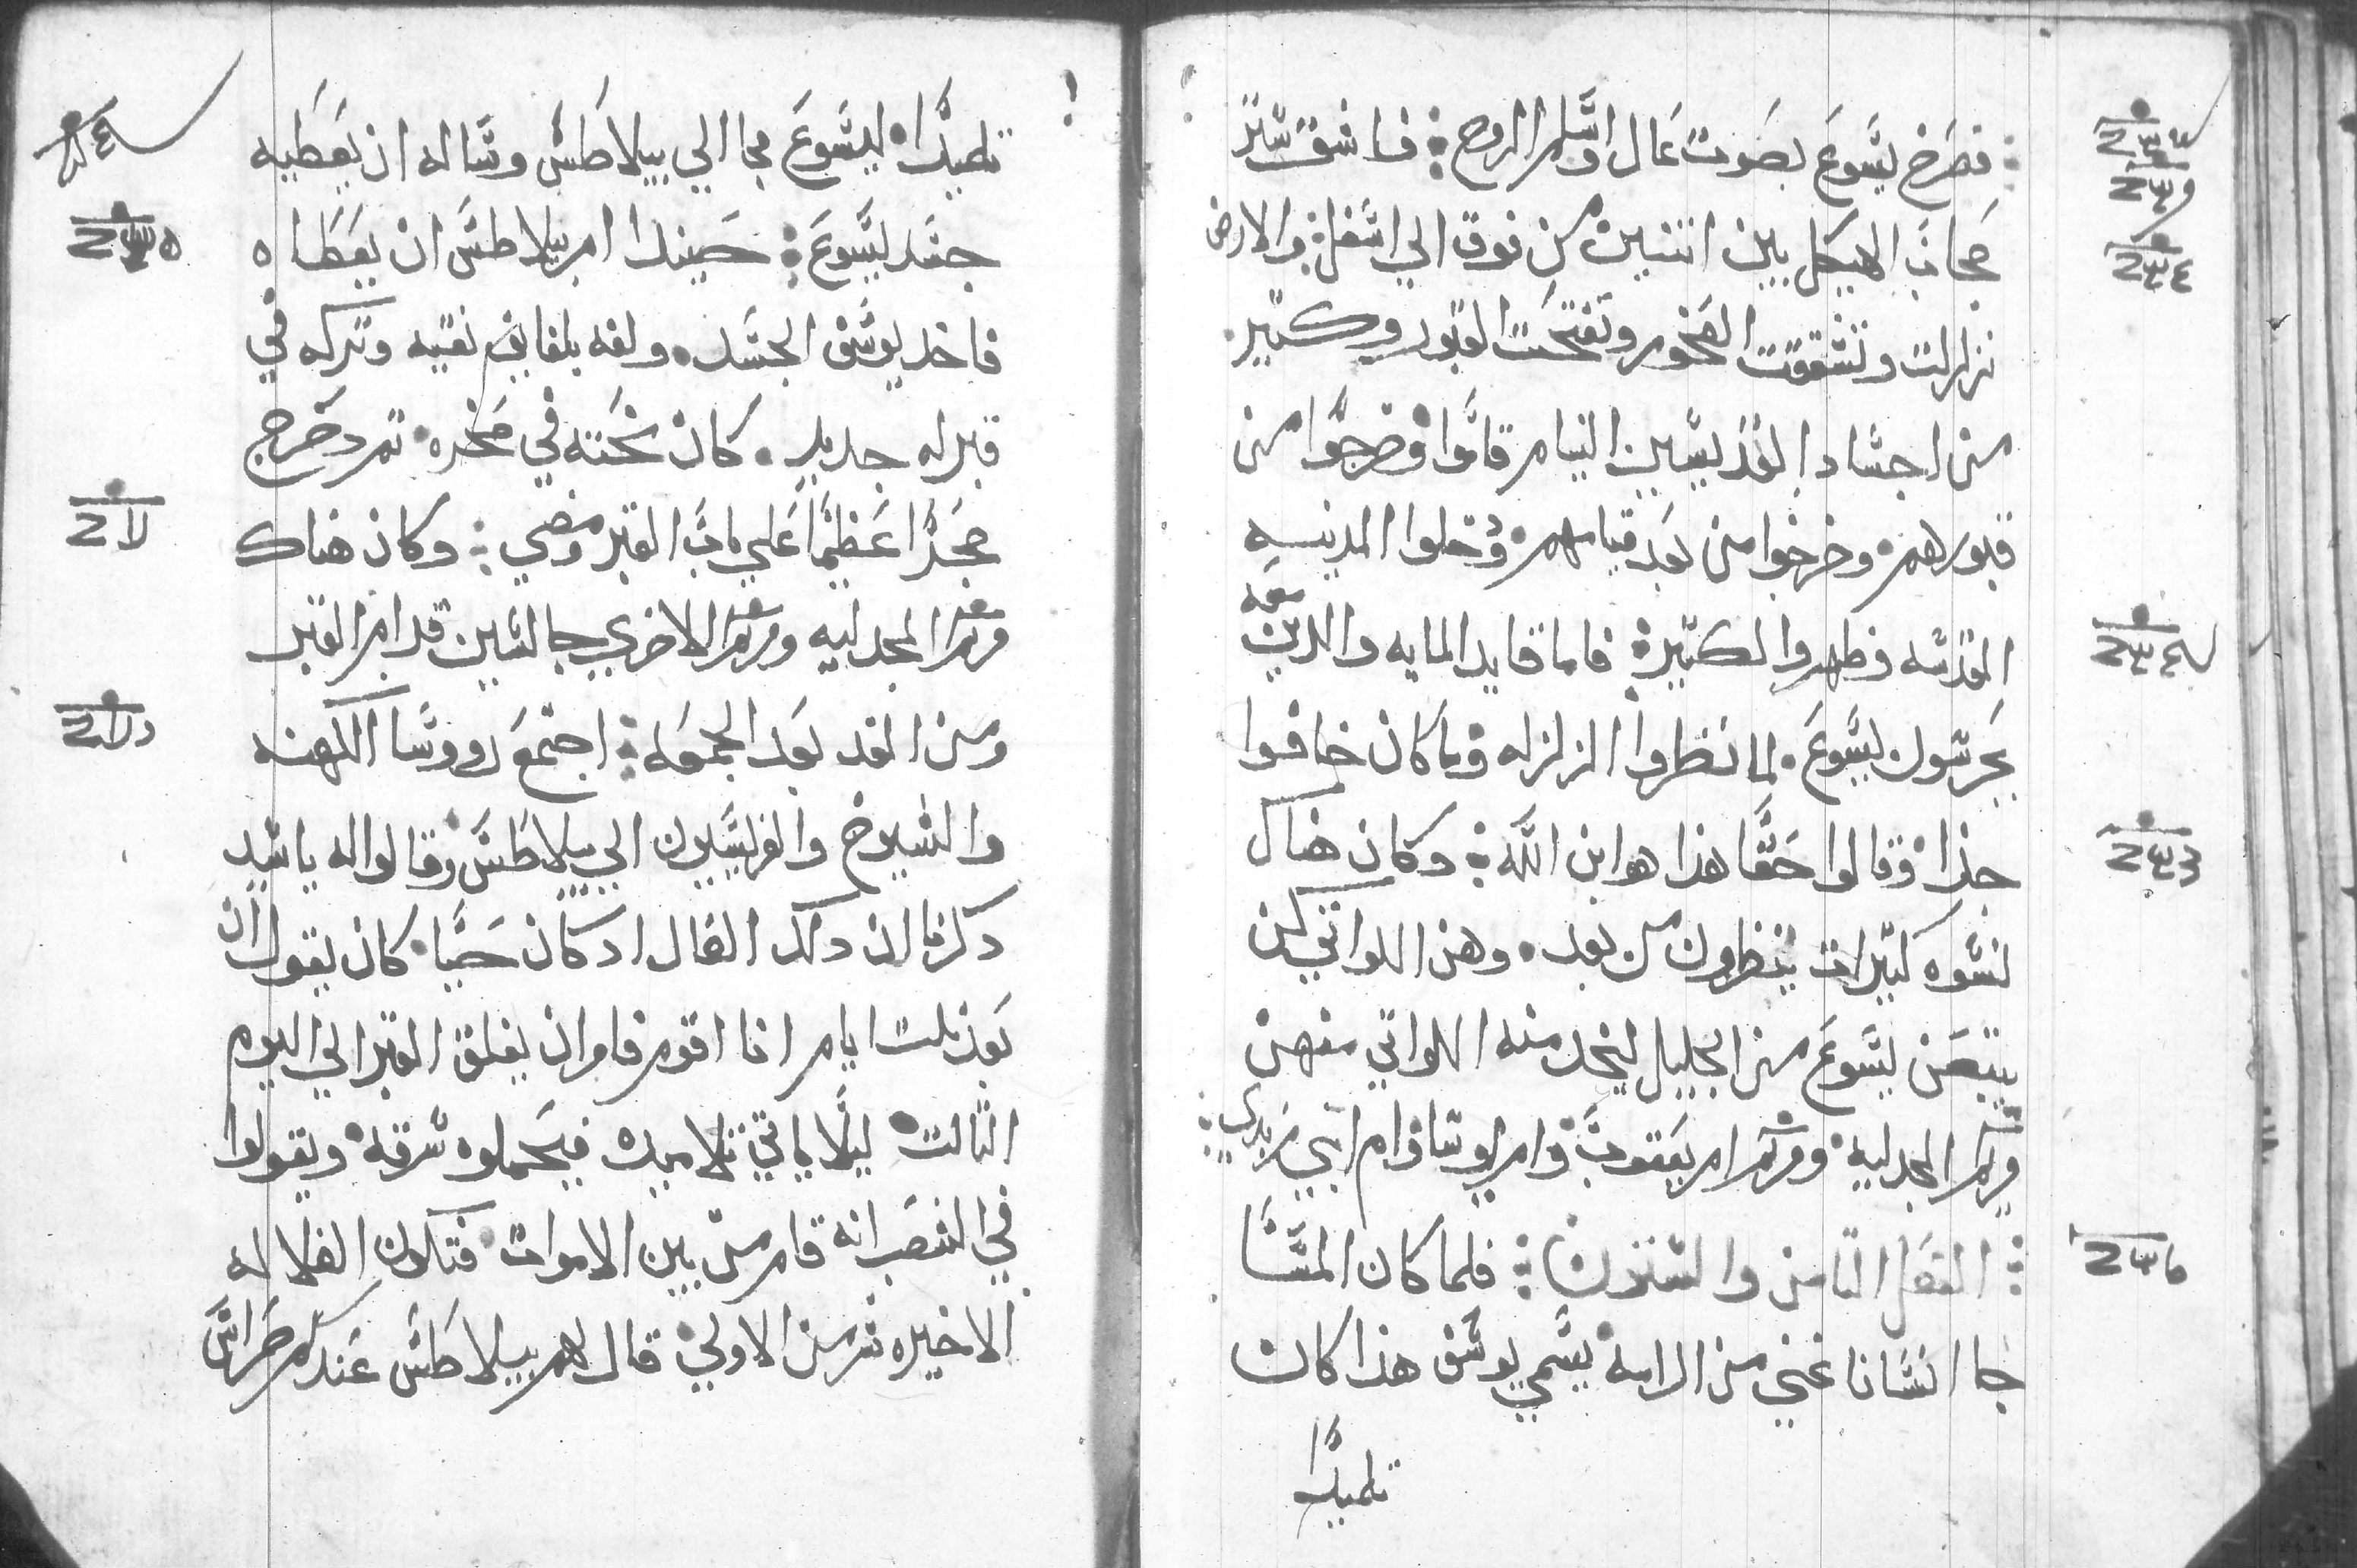 فصرخ يسوع بصوت عال واسلم الروح فانشق ستر
حجاب الهيكل بين اتنين من فوق الي اسفل والارض
تزلزلت وتشققت الصخور وتفتحت القبور وكتير
من اجساد القديسين النيام قاموا وخرجوا من
قبورهم وخرجوا من بعد قيامهم ودخلوا المدينه
المقدسه وظهروا لكتيرة فاما قايد المايه والدين معه
يحرسون يسوع لما نظروا الزلزله وما كان خافوا
جدا وقالوا حقا هذا هو ابن الله وكان هناك
نسوه كتيرات ينظرون من بعد وهن اللواتي كن
يتبعن يسوع من الجليل ليخدمنه اللواتي منهن
مريم المجدليه ومريم ام يعقوب وام يوسا وام ابني زبدي
الفصل التامن والستون فلما كان المسا
جا انسانا غني من الرامه يسمي يوسف هذا كان
تلميدا
تلميدا ليسوع فجا الي بيلاطس وساله ان يعطيه
جسد يسوع حينيدا امر بيلاطس ان يعطاه
فاخد يوسف الجسد ولفه بلفايف نقيه وتركه في
قبر له جديد كان نحته في صخره تم دحرج
حجرا عظيما علي باب القبر ومضي وكان هناك
مريم المجدليه ومريم الاخري جالسين قدام القبر
ومن الغد بعد الجمعه اجتمع رووسا الكهنه
والشيوخ والفريسيون الي بيلاطس وقالوا له يا سيد
دكرنا ان داك الضال اد كان حيا كان يقول ان
بعد تلت ايام انا اقوم فامر ان يغلق القبر الي اليوم
التالت ليلا ياتي تلاميده فيحملوه سرقه ويقولوا
في الشعب انه قام من بين الاموات فتكون الضلاله
الاخيره شر من الاولي قال لهم بيلاطس عندكم حراس